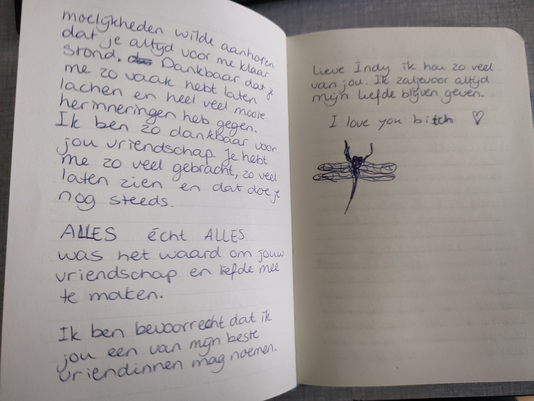 moeilijkheden wilde aanhoren
dat je altijd voor me klaar
stond. Dankbaar dat je
me zo vaak hebt laten
lachen en heel veel mooie
herinneringen heb gegen.
Ik ben zo dankbaar voor
jou vriendschap. Je hebt
me zo veel gebracht, zo veel
laten zien en dat doe je
nog steeds.
ALLES écht ALLES
was het waard om jouw
vriendschap en liefde mee
te maken.
Ik ben bevoorrecht dat ik
jou een van mijn beste
vriendinnen mag noemen.
lieve Indy ik hou zo veel
van jou. Ik zal je voor altijd
mijn liefde blijven geven.
I love you bitch ♡